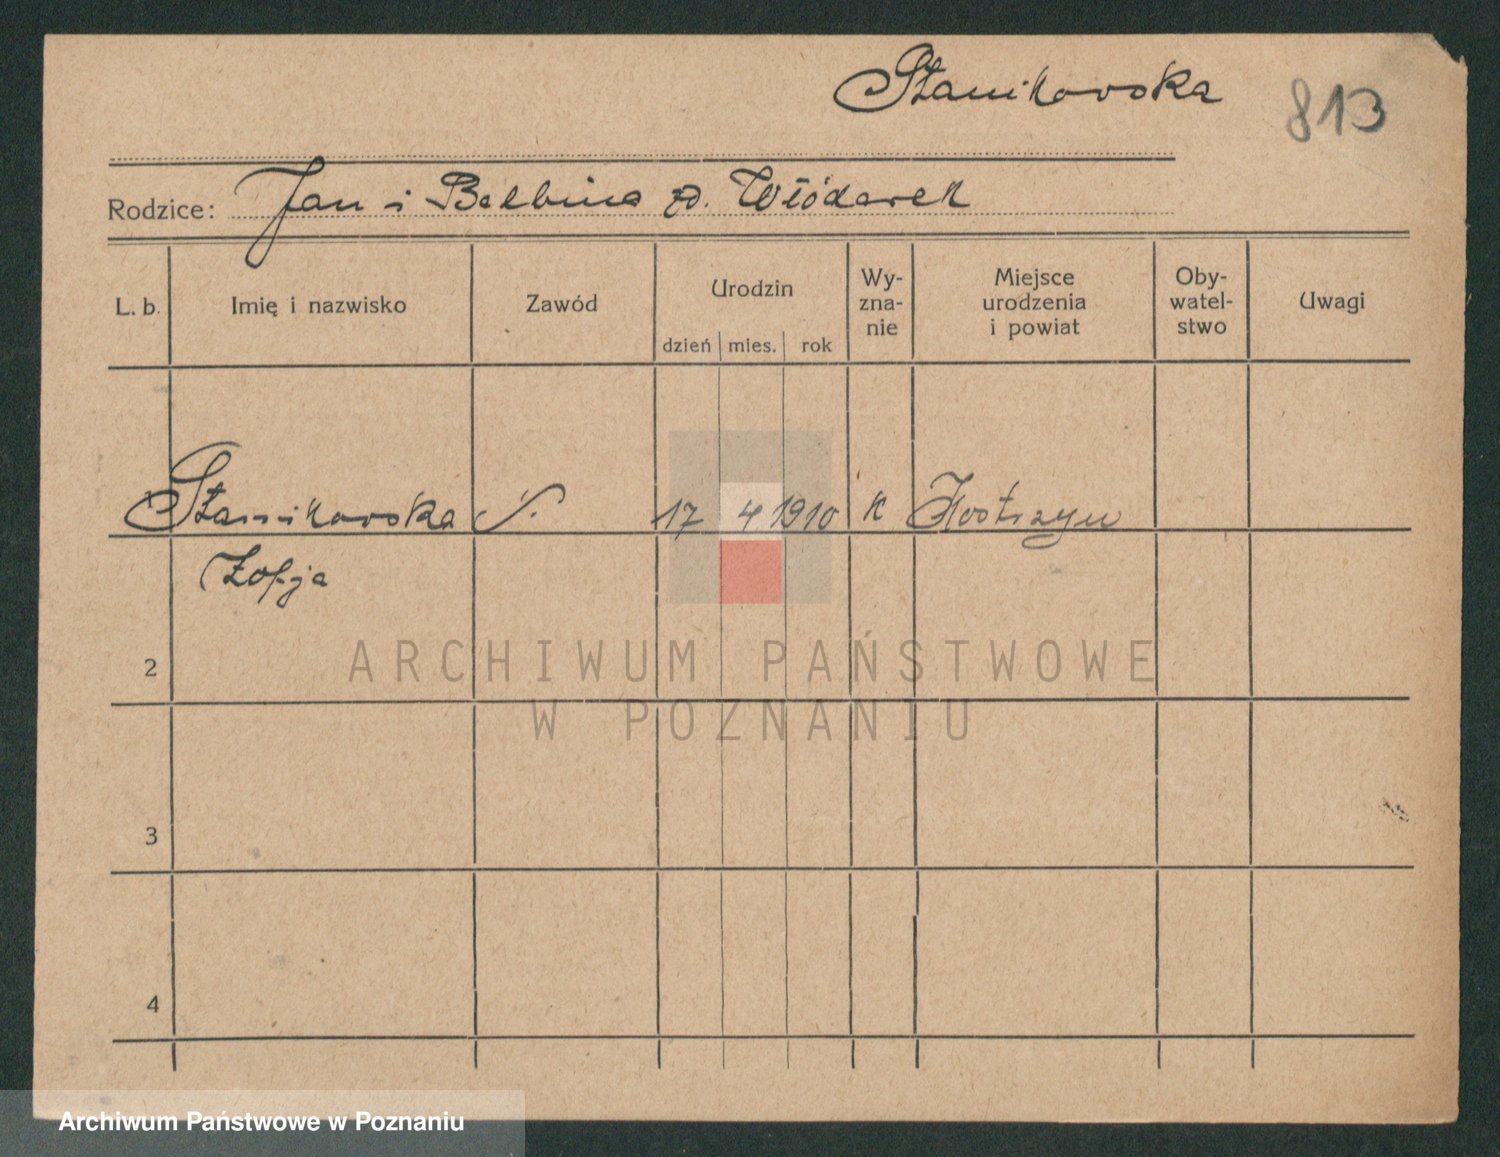 Stanikowska
813
Rodzice: Jan i Balbina z d. Włódarek
L. b.
Imię i nazwisko
Zawód
Urodzin
dzień mies. rok
Wy-
zna-
nie
Miejsce
urodzenia
i powiat
Oby-
watel-
stwo
Uwagi
Stanikowska 17 4 1910 k Kostrzyn
Zofja
2
3
4
ARCHIWUM PAŃSTWOWE
W POZNANIU
Archiwum Państwowe w Poznaniu